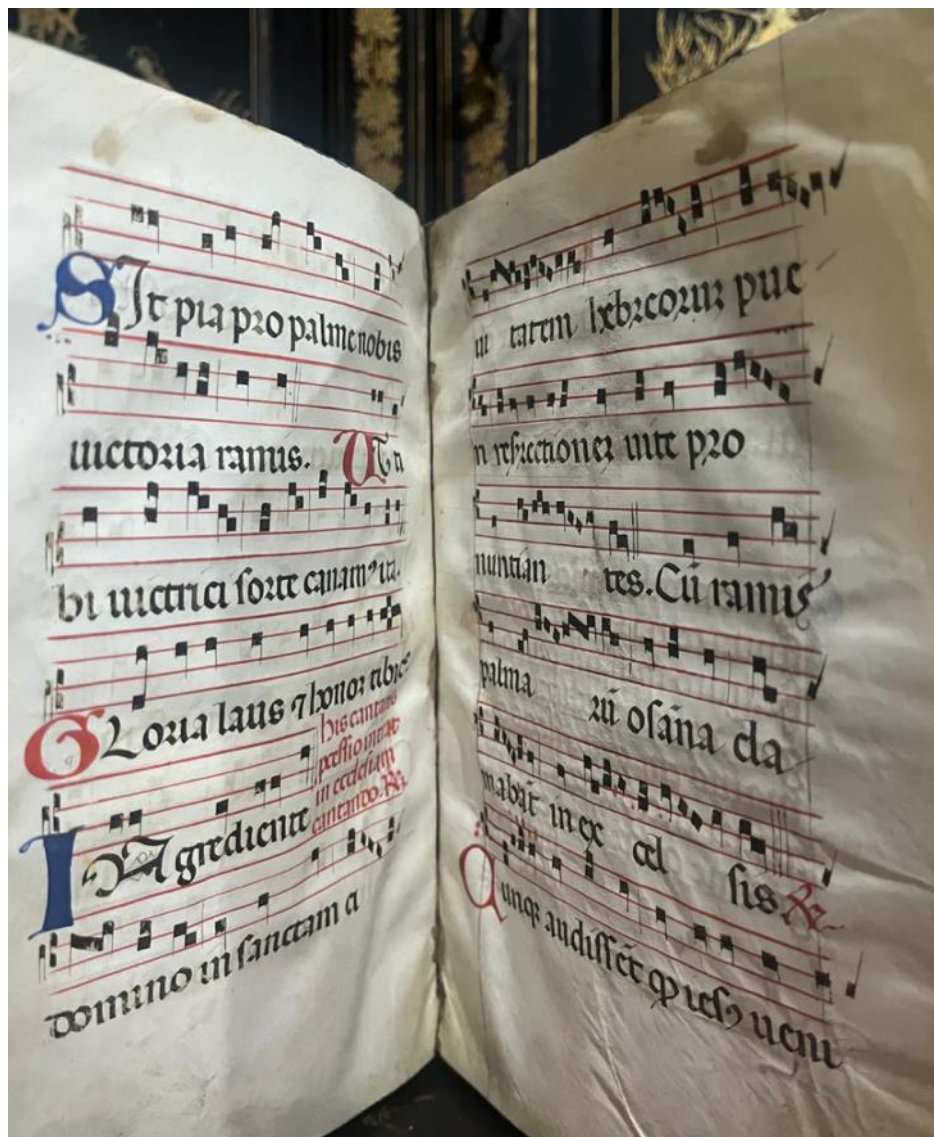 SIt pia pro palme nobis
uictoria ramus. Ut ti
bi uictrici sorte canamꝰ ita.
GLoria laus ⁊ honor tibi
his cantatis
in ecclesiam
cantando. ℟
INgrediente
domino in sanctam a
ui tatem hebreorum pue
ri resurrectionem uite pro
nuntian tes. Cū ramis
palma rū osāna cla
mabāt in ex cel sis ℟
Cunqꝫ audissēt qꝫ iesꝰ ueni